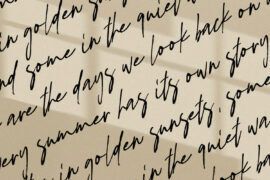 in golden sunsets
and some in the quiet wa
are the days we look back on
every summer has its own story
in golden sunsets, some
in the quiet wa
look ba